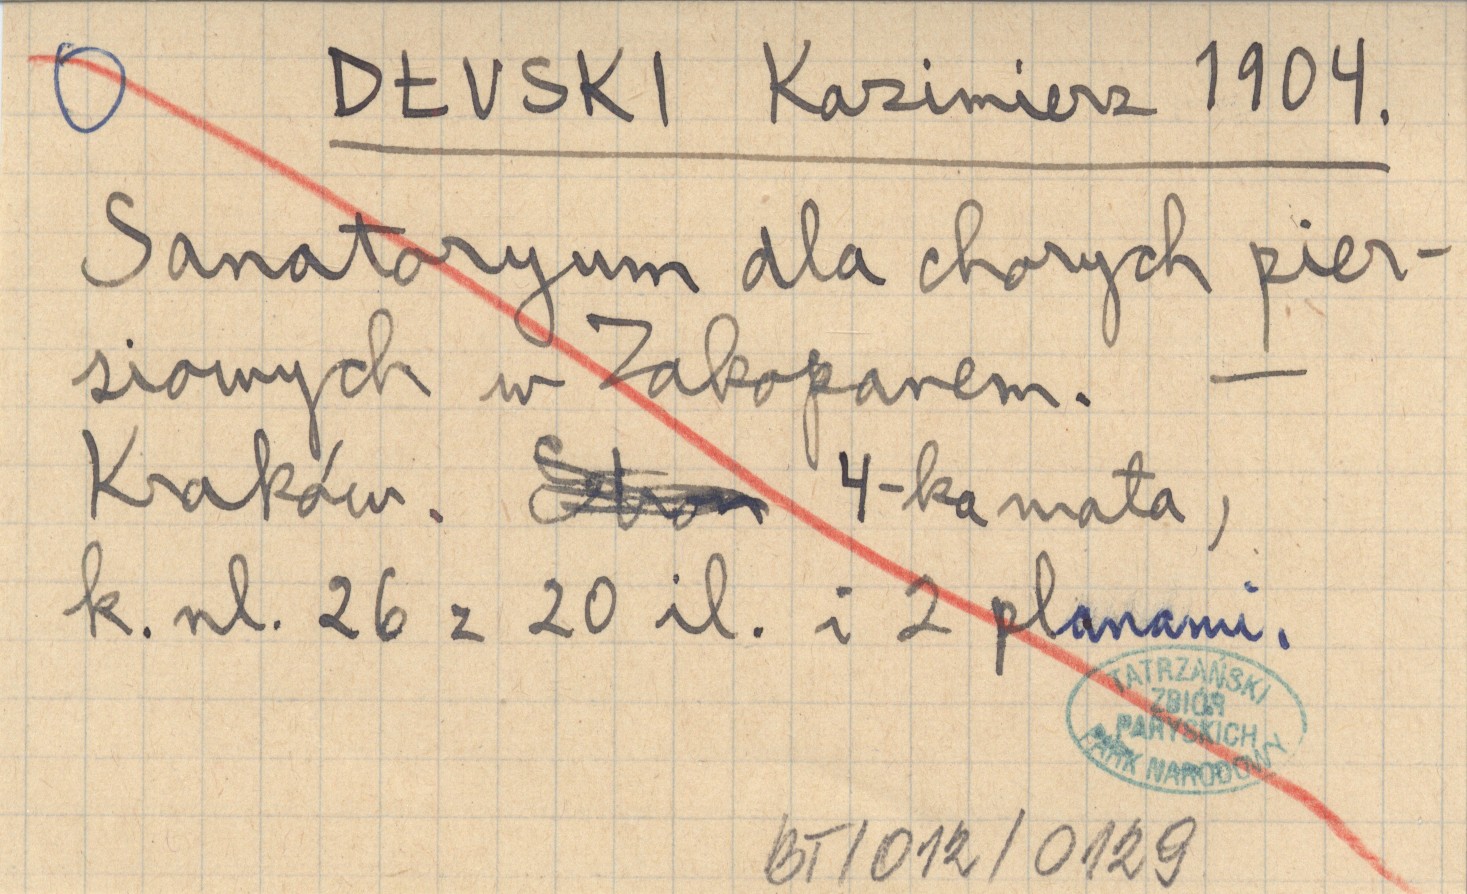 DŁUSKI Kazimierz 1904.
Sanatoryum dla chorych pier-
siowych w Zakopanem. —
Kraków. Stron 4-ka mała,
k. nl. 26 z 20 il. i 2 planami.
TATRZAŃSKI
ZBIÓR
PARYSKICH
PARK NARODOWY
BT/012/0129